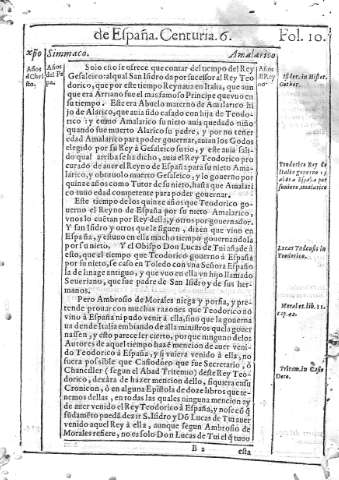 de España. Centuria. 6.
Fol. 10.
Xpo
Simmaco.
Amalarico.
Años
del Chri-
sto.
Años
del Pa-
pa.
Años
del Rey
no.
Solo esto se ofrece que contar del tiempo del Rey
Gesaleico: al qual San Isidro da por sucesor al Rey Teo
dorico, que por este tiempo Reynaua en Italia, que aun
que era Arriano fue el mas famoso Principe que vuo en
su tiempo. Este era Abuelo materno de Amalarico hi
jo de Alarico, que auia sido casado con hija de Teodo-
rico : y como Amalarico su nieto auia quedado niño
quando fue muerto Alarico su padre, y por no tener
edad Amalarico para poder gouernar, auian los Godos
elegido por su Rey à Gesaleico su tio, y este auia sali-
do qual arriba se ha dicho, auia el Rey Teodorico pro
curado de auer el Reyno de España para su nieto Ama
larico, y obtuuolo muerto Gesaleico, y lo gouerno por
quinze años como Tutor de su nieto, hasta que Amalari
co tuuo edad competente para poder gouernar.
Este tiempo de los quinze años que Teodorico go-
uerno el Reyno de España por su nieto Amalarico,
vnos lo cuentan por Rey della, y otros por gouernador.
Y San Isidro y otros que le siguen, dizen que vino en
España, y estuuo en ella mucho tiempo gouernandola
por su nieto. Y el Obispo Don Lucas de Tui añade à
esto, que el tiempo que Teodorico gouernó à España
por su nieto, se caso en Toledo con vna Señora Españo
la de linage antiguo, y que vuo en ella vn hijo llamado
Seueriano, que fue padre de San Isidro y de sus her-
manos.
Pero Ambrosio de Morales niega y porfia, y pre-
tende prouar con muchas razones que Teodorico no
vino à España ni pudo venir à ella, sino que la gouerna
ua dende Italia embiando de alla ministros que la gouer
nassen, y esto parece ser cierto, porque ninguno de los
Autores de aquel tiempo haze mencion de auer veni-
do Teodorico à España, y si vuiera venido à ella, no
fuera possible que Casiodoro que fue Secretario, ò
Chanciller (segun el Abad Tritemio) deste Rey Teo-
dorico, dexàra de hazer mencion dello, siquiera en su
Cronicon, ò en alguna Epistola de doze libros que te-
nemos dellas, en todas las quales ninguna mencion ay
de auer venido el Rey Teodorico à España, y no se con que
fundamẽto pueda dezir S. Isidro y Dõ Lucas de Tui auer
venido aquel Rey à ella, aunque segun Ambrosio de
Morales refiere, no es solo Don Lucas de Tui el q̃ tuuo
B 2
esta
Isidor. in Histor.
Gothor.
Teodorico Rey de
Italia gouerno à
España por
su nieto, Amalarico
Lucas Tudensis in
Teodorico.
Morales lib. 11.
cap. 42.
Tritem. in Casio
doro.